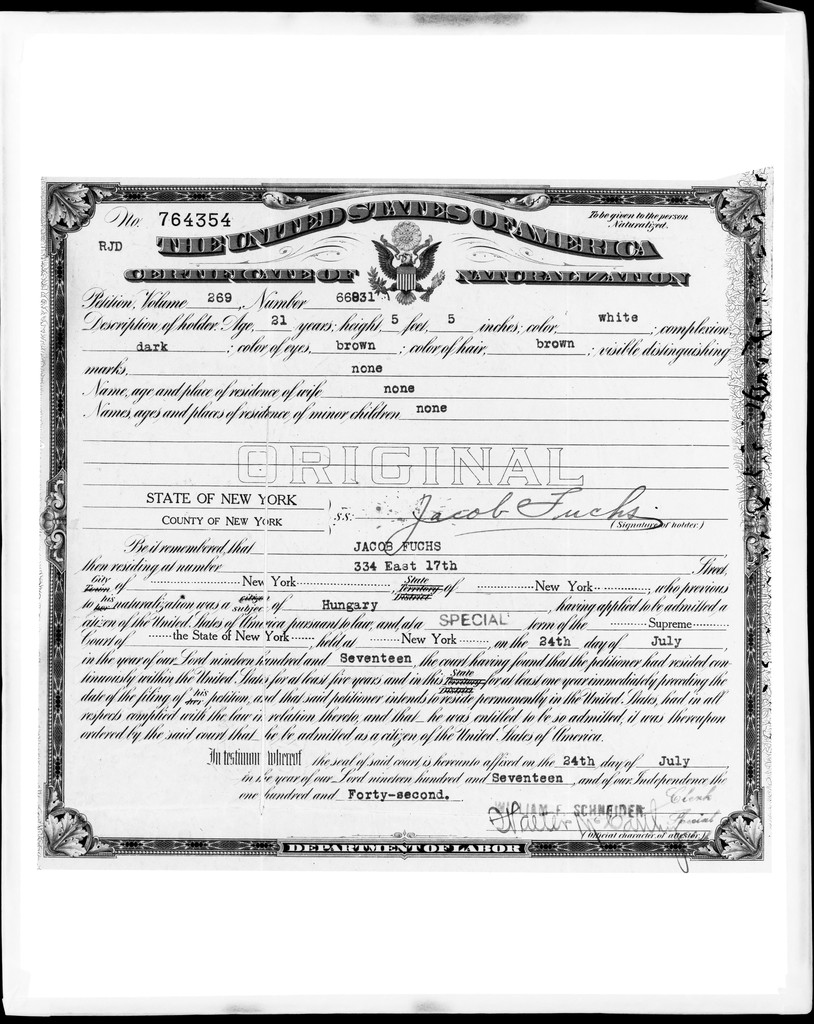 No. 764354
To be given to the person
Naturalized.
RJD
THE UNITED STATES OF AMERICA
CERTIFICATE OF NATURALIZATION
Petition, Volume 269, Number 66831
Description of holder: Age, 21 years; height, 5 feet, 5 inches; color, white; complexion,
dark; color of eyes, brown; color of hair, brown; visible distinguishing
marks, none
Name, age and place of residence of wife none
Names, ages and places of residence of minor children none
ORIGINAL
STATE OF NEW YORK
COUNTY OF NEW YORK
s.s.
Jacob Fuchs
(Signature of holder.)
Be it remembered, that JACOB FUCHS
then residing at number 334 East 17th Street,
City Town of New York, State Territory District of New York, who previous
to his her naturalization was a citizen subject of Hungary, having applied to be admitted a
citizen of the United States of America pursuant to law, and at a SPECIAL term of the Supreme
Court of the State of New York, held at New York, on the 24th day of July,
in the year of our Lord nineteen hundred and Seventeen, the court having found that the petitioner had resided con-
tinuously within the United States for at least five years and in this State Territory District for at least one year immediately preceding the
date of the filing of his her petition, and that said petitioner intends to reside permanently in the United States, had in all
respects complied with the law in relation thereto, and that he was entitled to be so admitted, it was thereupon
ordered by the said court that he be admitted as a citizen of the United States of America.
In testimony whereof the seal of said court is hereunto affixed on the 24th day of July
in the year of our Lord nineteen hundred and Seventeen, and of our Independence the
one hundred and Forty-second.
WILLIAM F. SCHNEIDER
Clerk
Walter
Special
(Official character of attestor.)
DEPARTMENT OF LABOR